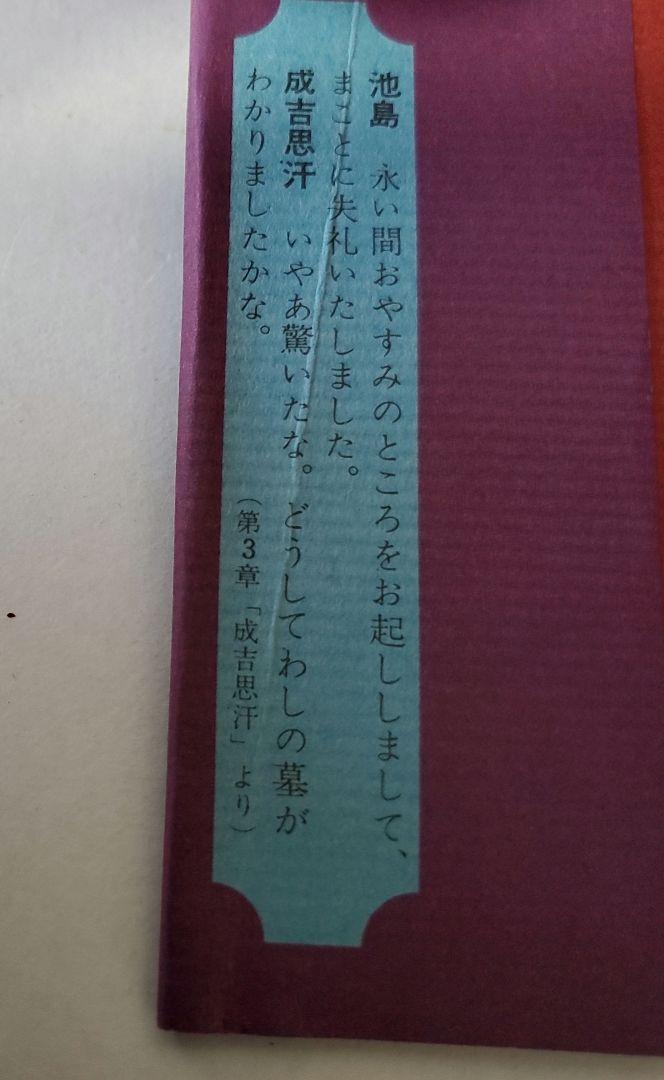 池島　永い間おやすみのところをお起ししまして、
まことに失礼いたしました。
成吉思汗　いやあ驚いたな。どうしてわしの墓が
わかりましたかな。
（第3章「成吉思汗」より）